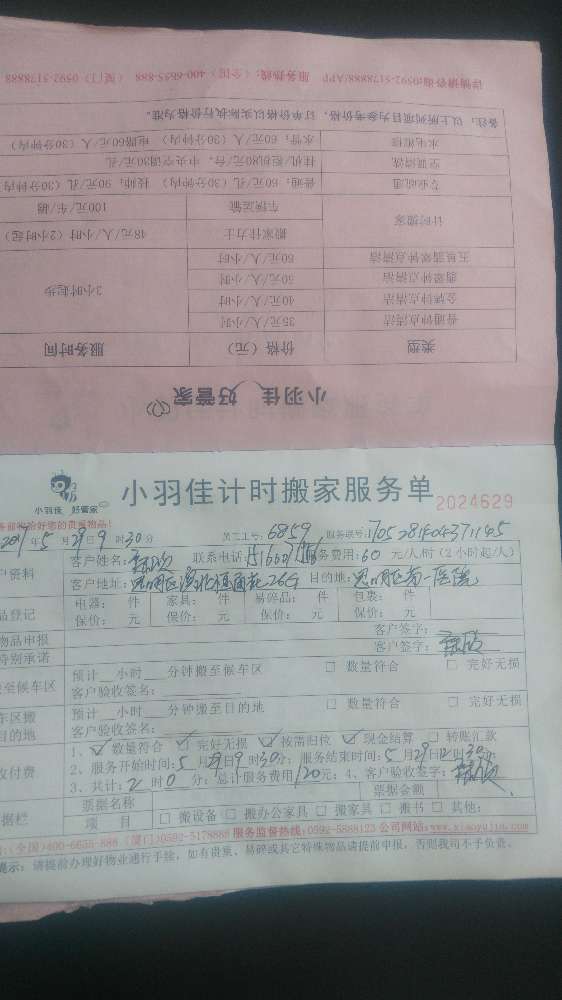 小羽佳 好管家
类型 价格（元） 服务时间
普通钟点清洁 35元/人/小时 3小时起步
金牌钟点清洁 40元/人/小时
翡翠钟点清洁 50元/人/小时
玉墅翡翠钟点清洁 60元/人/小时
计时搬家 搬家佳力士 48元/人/小时（2小时起）
车辆运输 100元/车/趟
专业疏通 普通：60元/孔（30分钟内） 技师：90元/孔（30分钟内
空调清洗 挂机/柜机80元/台，中央空调30元/孔
水电维修 水管：60元/人（30分钟内） 电路60元/人（30分钟内）
备注：以上所列项目为参考价格，订单价格以实际执行价格为准。
详情请咨询0592-5178888/APP 服务热线：（全国）400-6655-888（厦门）0592-5178888
小羽佳 好管家
小羽佳计时搬家服务单 2024629
好您的贵重物品！
年5月29日9时30分 员工工号：6859 服务联号：
客户资料 客户姓名： 联系电话： 服务费用：60元/人/时（2小时起/人）
客户地址： 目的地：思明区第一医院
品登记 电器： 件 家具： 件 易碎品： 件 包裹： 件
保价： 元 保价： 元 保价： 元 保价： 元
物品申报 客户签字：
特别承诺 客户签字：
搬至候车区 预计__小时__分钟搬至候车区 □ 数量符合 □ 完好无损
客户验收签名：
车区搬 预计__小时__分钟搬至目的地 □ 数量符合 □ 完好无损
目的地 客户验收签名：
收付费 1、☑ 数量符合 ☑ 完好无损 ☑ 按需归位 ☑ 现金结算 □ 转账汇款
2、服务开始时间：5月29日9时30分；服务结束时间：5月29日12时30分；
3、共计：2时0分；总计服务费用120元；4、客户验收签字：
据栏 票据名称 票据金额
项 目 □ 搬设备 □ 搬办公家具 □ 搬家具 □ 搬书 □ 其他：
：(全国)400-6655-888 (厦门)0592-5178888 服务监督热线:0592-5888123 公司网站:www.xiaoyujia.com
提示：请提前办理好物业通行手续，如有贵重、易碎或其它特殊物品请提前申报，否则我司不予负责。